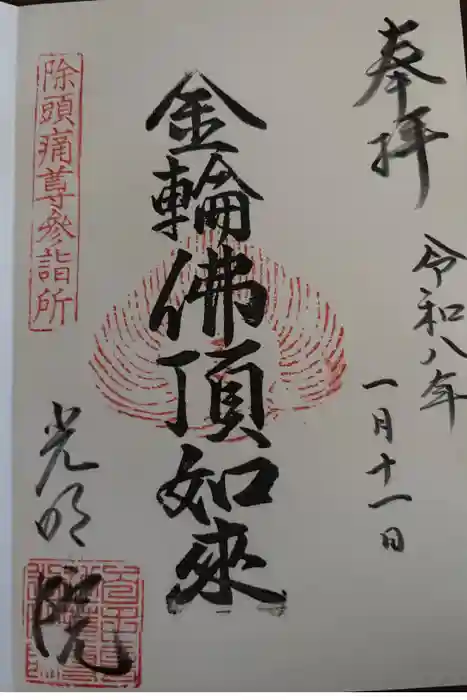 奉拝
令和八年
一月十一日
金輪佛頂如來
除頭痛尊参詣所
光明院